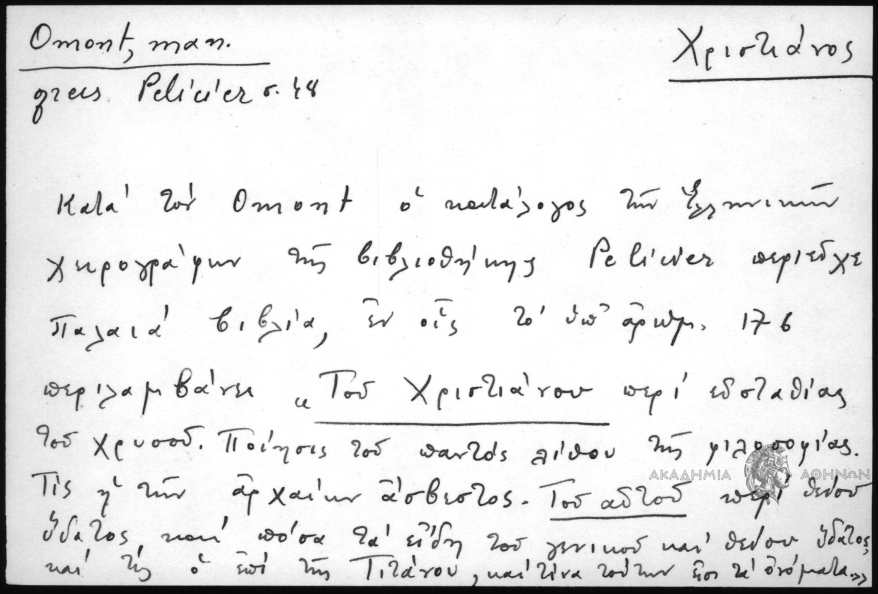 Omont, man.
Χριστιάνος
grecs. Pelicier σ. 48
Κατά τόν Omont ὁ κατάλογος τῶν Ἑλληνικῶν
χειρογράφων τῆς βιβλιοθήκης Pelicier περιεῖχε
Παλαιά βιβλία, ἐν οἷς τό ὑπ' ἀριθμ. 176
περιλαμβάνει «Τοῦ Χριστιάνου περί εὐσταθίας
τοῦ χρυσοῦ. Ποίησις τοῦ παντός λίθου τῆς φιλοσοφίας.
ΑΚΑΔΗΜΙΑ ΑΘΗΝΩΝ
Τίς ἡ τῶν ἀρχαίων ἄσβεστος. Τοῦ αὐτοῦ περί θείου
ὕδατος, καί πόσα τά εἴδη τοῦ γενικοῦ καί θείου ὕδατος,
καί τίς ὁ ἐπί τῆς Τιτάνου, καί τίνα τούτων εἰσι τά ὀνόματα»